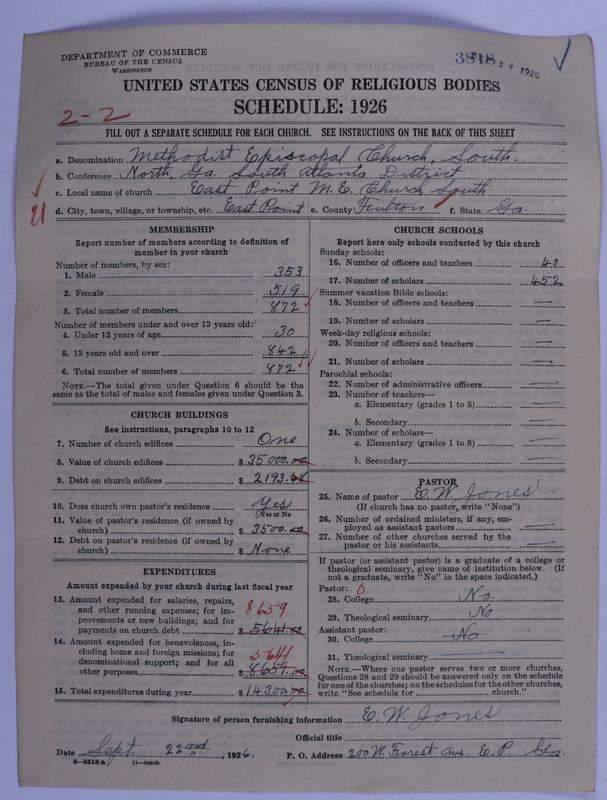 DEPARTMENT OF COMMERCE
BUREAU OF THE CENSUS
WASHINGTON
3818
24 1926
UNITED STATES CENSUS OF RELIGIOUS BODIES
SCHEDULE: 1926
2-2
FILL OUT A SEPARATE SCHEDULE FOR EACH CHURCH. SEE INSTRUCTIONS ON THE BACK OF THIS SHEET
a. Denomination Methodist Episcopal Church, South.
b. Conference North, Ga. South Atlanta District
c. Local name of church East Point M.E. Church South
d. City, town, village, or township, etc. East Point e. County Fulton f. State Ga.
21
MEMBERSHIP
Report number of members according to definition of
member in your church
Number of members, by sex:
1. Male 353
2. Female 519
3. Total number of members 872
Number of members under and over 13 years old:
4. Under 13 years of age 30
5. 13 years old and over 842
6. Total number of members 872
NOTE.—The total given under Question 6 should be the
same as the total of males and females given under Question 3.
CHURCH BUILDINGS
See instructions, paragraphs 10 to 12
7. Number of church edifices One
8. Value of church edifices $ 35000.00
9. Debt on church edifices $ 2193.
10. Does church own pastor's residence Yes
(Yes or No)
11. Value of pastor's residence (if owned by
church) $ 3500.00
12. Debt on pastor's residence (if owned by
church) $ None
EXPENDITURES
Amount expended by your church during last fiscal year
13. Amount expended for salaries, repairs,
and other running expenses; for im-
provements or new buildings; and for
payments on church debt 8659 $ 5641.00
14. Amount expended for benevolences, in-
cluding home and foreign missions; for
denominational support; and for all
other purposes 5641 $ 8659.00
15. Total expenditures during year $ 14300.00
CHURCH SCHOOLS
Report here only schools conducted by this church
Sunday schools:
16. Number of officers and teachers 40
17. Number of scholars 452
Summer vacation Bible schools:
18. Number of officers and teachers —
19. Number of scholars —
Week-day religious schools:
20. Number of officers and teachers —
21. Number of scholars —
Parochial schools:
22. Number of administrative officers —
23. Number of teachers—
a. Elementary (grades 1 to 8) —
b. Secondary —
24. Number of scholars—
a. Elementary (grades 1 to 8) —
b. Secondary —
PASTOR
25. Name of pastor E. W. Jones
(If church has no pastor, write "None")
26. Number of ordained ministers, if any, em-
ployed as assistant pastors —
27. Number of other churches served by the
pastor or his assistants —
If pastor (or assistant pastor) is a graduate of a college or
theological seminary, give name of institution below. (If
not a graduate, write "No" in the space indicated.)
Pastor: 0
28. College No.
29. Theological seminary No
Assistant pastor:
30. College No
31. Theological seminary —
NOTE.—Where one pastor serves two or more churches,
Questions 28 and 29 should be answered only on the schedule
for one of the churches; on the schedules for the other churches,
write "See schedule for church."
Signature of person furnishing information E. W. Jones
Official title
Date Sept. 22nd, 1926. P. O. Address 200 W. Forest Ave. E. P. Ga.
8-5518 a